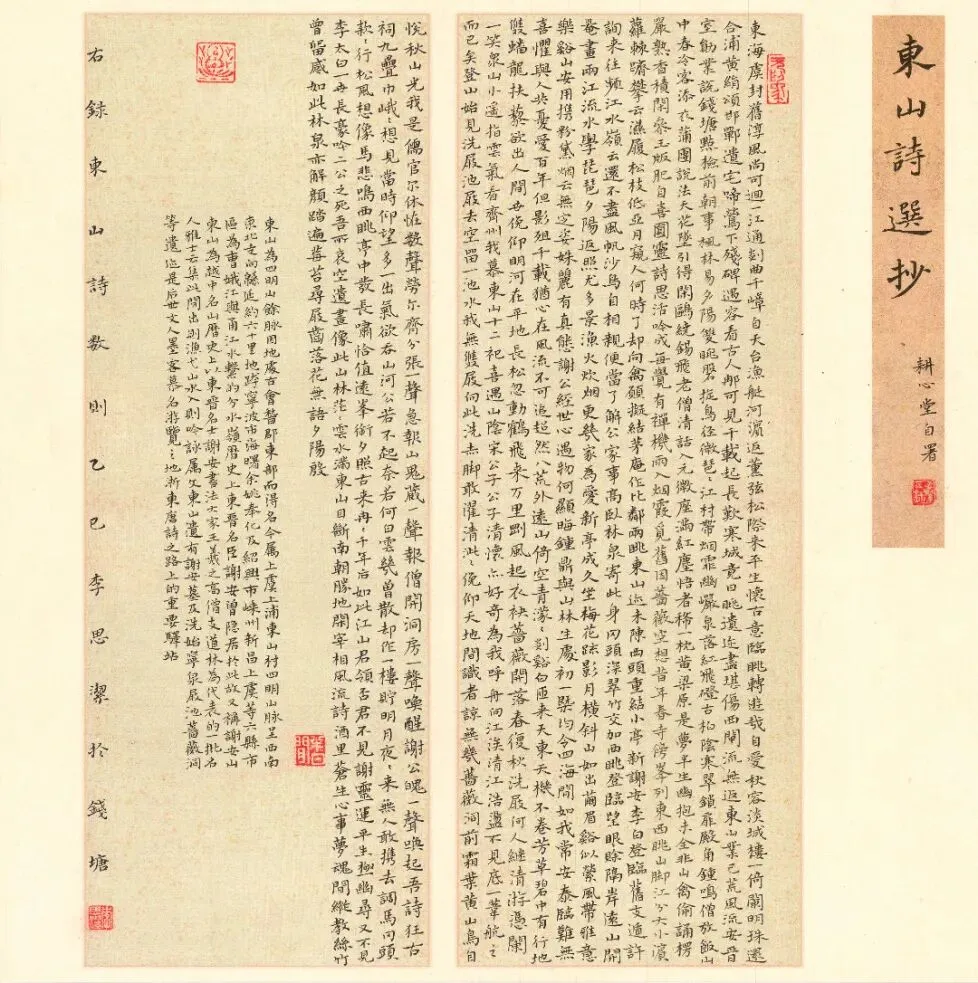 東山詩選抄
耕心堂自署
東海虞封舊淳風尚可迴一江通剡曲千嶂自天台漁艇河濱返薰弦松際来平生懷古意臨眺轉遊哉自愛秋容淡城樓一倚闌明珠還
合浦黃絹頌邯鄲遺宅啼鶯下殘碑過客看古人那可見千載起長歎寒城竟日眺遺迹盡堪傷西閣流無返東山業已荒風流安晉
室勳業說錢塘點檢前朝事楓林易夕陽雙眺磬捉鳥徑微琶江村帶烟霏幽巖泉落紅飛磴古柏陰寒翠鎖扉殿角鍾鳴僧放飯山
中春冷客添衣蒲團說法天花墜引得閑鷗繞錫飛老僧清話入元微座滿紅塵悟者稀一枕黃粱原是夢半生幽抱未全非山禽偷誦楞
嚴熟香積閑參玉版肥自喜圓靈詩思活吟成每覺有禪機雨入烟霞覓舊因薔薇空想昔年春寺傍峯列東西眺山脚江分大小濱
蘿棘躋攀云濕履松枝低亞月窺人何時了却向禽願擬結茅庵作比鄰兩眺東山迹未陳西頭重結小亭新謝安李白登臨舊支遁許
詢来往頻江水嶺云還不盡風帆沙鳥自相親便當了解公家事高臥林泉寄此身回頭深翠竹交加西眺登臨望眼賒隔岸遠山開
菴畫兩江流水學琵琶夕陽返照尤多景漁火炊烟更幾家為愛新亭成久坐梅花疏影月橫斜山如出繭眉谿似縈風帶雅意
樂谿山安用携粉黛烟云無定姿姝麗有真態謝公經世心遇物何顯晦鍾鼎與山林生處初一槩均令四海間如我常安泰臨難無
喜懼與人共憂愛百年但影殂千載猶心在風流不可追超然八荒外遠山倚空青濛々剡谿白西来天東天機不卷芳草碧中有行地
雙蟠龍扶藜欲出人間世俛仰明河在平地長松忽動鶴飛来万里剛風起衣袂薔薇開落春復秋洗屐何人繼清游憑闌
一笑泉山小遥指雲氣看齊州我慕東山十二祀喜遇山陰宋公子公子清懷亦好奇為我呼舟向江涘清江浩盪不見底一葦航之
而已矣登山始見洗屐池屐去空留一池水我無雙屐向此洗赤脚敢濯清洪々俛仰天地間識者諒無幾薔薇洞前霜葉黃山鳥自
悅秋山光我是儒官尔休恠數聲勞尔齊分張一聲急報山鬼藏一聲報僧開洞房一聲喚醒謝公魄一聲喚起吾詩狂古
祠九疊巾峨々想見當時仰望多一出氣欲吞山河公若不起奈若何白雲幾曾散却作一樓貯明月夜々来無人敢携去調馬回頭
款々行松風想像馬悲鳴西眺亭中敞長嘯恰值遠峯銜夕照古来冉々千年后如此江山君領否君不見謝靈運平生極幽尋又不見
李太白一再長豪吟二公之死吾所哀空遺畫像此山林茫々雲水滿東山目斷南朝勝地閑宰相風流詩酒里蒼生心事夢魂間縱教絲竹
曾留感如此林泉亦解顏踏遍莓苔尋屐齒落花無語夕陽殷
東山為四明山餘脉因地處古會稽郡東部而得名今屬上虞上浦東山村四明山脉呈西南
東北走向綿延約六十里地跨寧波市海曙余姚奉化及紹興市嵊州新昌上虞等六縣市
區為曹娥江與甬江水繫的分水嶺曆史上東晋名臣謝安曾隐居於此故又稱謝安山
東山為越中名山曆史上以東晋名士謝安書法士家王羲之高僧支道林為代表的一批名
人雅士云集此間出則漁弋山水入則吟詠屬文東山遺有謝安墓及洗始寧泉屐池薔薇洞
等遺迹是后世文人墨客慕名游覽之地浙東唐詩之路上的重要驛站
右録東山詩数則乙巳李思潔於錢塘